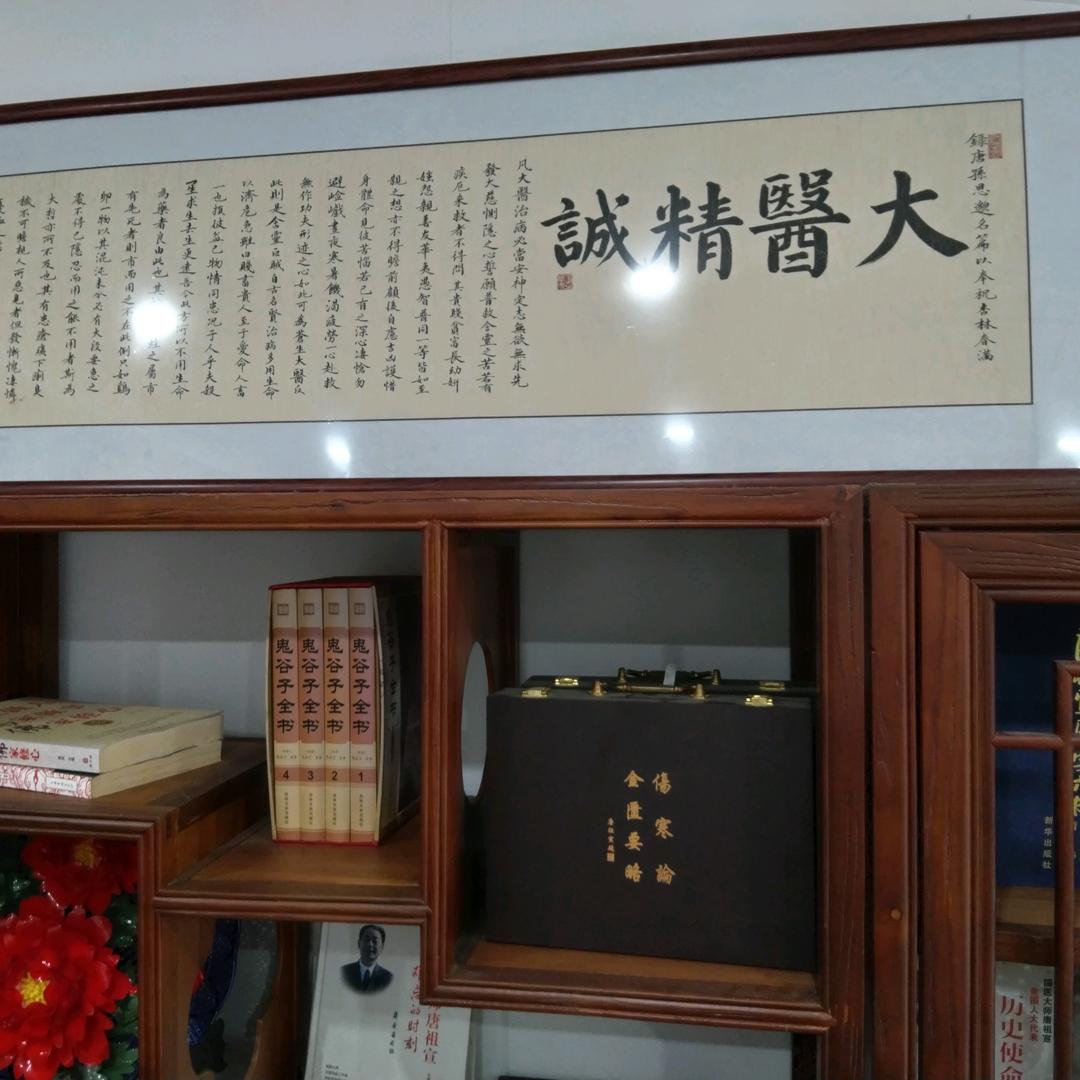 錄唐孫思邈名篇以奉祝杏林春滿
大醫精誠
凡大醫治病必當安神定志無欲無求先
發大慈惻隱之心誓願普救含靈之苦若有
疾厄來救者不得問其貴賤貧富長幼妍
媸怨親善友華夷愚智普同一等皆如至
親之想亦不得瞻前顧後自慮吉凶護惜
身體命見彼苦惱若己有之深心悽愴勿
避嶮巇晝夜寒暑飢渴疲勞一心赴救
無作功夫形迹之心如此可為蒼生大醫反
此則是含靈巨賊自古名賢治病多用生命
以濟危急雖曰賤畜貴人至于愛命人畜
一也損彼益己物情同患況于人乎夫殺
生求生去生更遠吾今此方所以不用生命
為藥者良由此也其 之屬市
有先死者則市而用之不在此例只如鷄
卵一物以其混沌未分必有大段要急之
處不得已隱忍而用之能不用者斯為
大哲亦所不及也其有患瘡痍下痢臭
穢不可瞻視人所惡見者但發慚愧凄憐
鬼谷子全书
4
鬼谷子全书
3
鬼谷子全书
2
鬼谷子全书
1
傷寒論
金匱要略
唐祖宣題
新华出版社
唐祖宣
国医大师唐祖宣
全国人大代表
历史使命